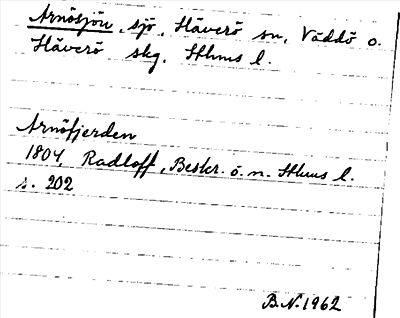 Arnösjön, sjö, Häverö sn, Väddö o.
Häverö skg, Sthms l.
Arnöfjerden
1804, Radloff, Beskr. ö. n. Sthms l.
s. 202
B.N. 1962